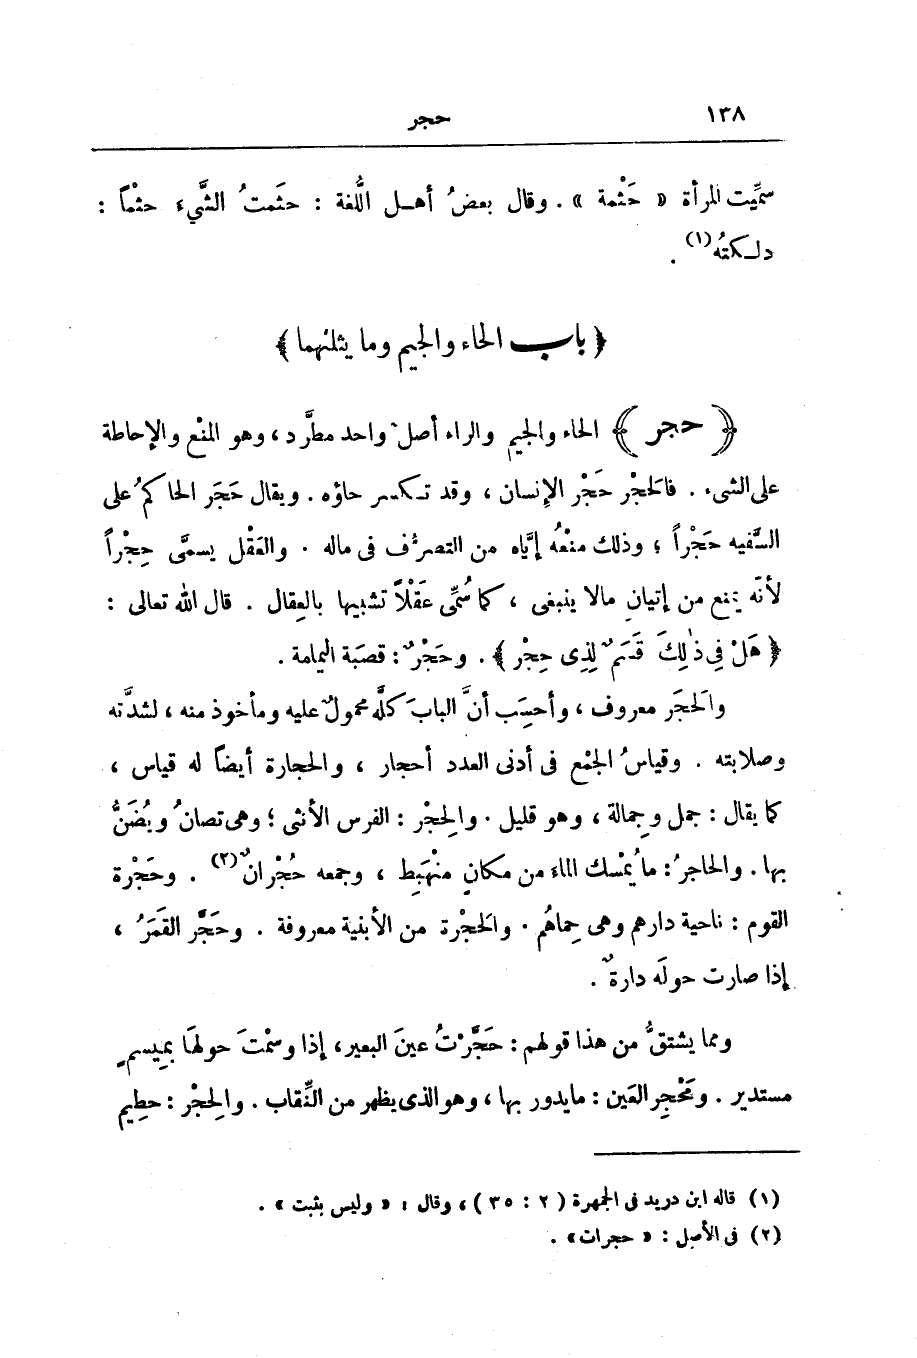 ١٣٨ حجر
سمِّيت المرأة « حَثْمة » . وقال بعضُ أهـل اللُّغة : حثَمتُ الشَّيء حثمْاً :
دلـكتُه(١) .
﴿ باب الحاء والجيم وما يثلثهما ﴾
﴿ حجر ﴾ الحاء والجيم والراء أصلٌ واحد مطَّرد ، وهو المنْع والإحاطة
على الشىء . فالحَجْر حَجْر الإنسان ، وقد تـكسر حاؤه . ويقال حَجَر الحاكمُ على
السَّفيه حَجْراً ؛ وذلك منْعُه إيَّاه من التصرُّف فى ماله . والعَقْل يسمَّى حِجْراً
لأنّه يمنع من إتيانِ مالا ينبغى ، كما سُمِّى عَقْلاً تشبيها بالعِقال . قال الله تعالى :
﴿ هَلْ فِي ذٰلِكَ قَسَمٌ لِذِى حِجْرٍ ﴾ . وحَجْرٌ : قصَبَة اليمامة .
والحَجَر معروف ، وأحسَِب أنَّ البابَ كلَّه محمولٌ عليه ومأخوذ منه ، لشدَّته
وصلابته . وقياسُ الجمْع فى أدنى العدد أحجار ، والحجارة أيضاً له قياس ،
كما يقال : جمل وجِمالة ، وهو قليل . والحِجْر : الفرس الأنثى ؛ وهى تصانُ ويُضَنُّ
بها . والحاجرُ : ما يُمْسك الماء من مكانٍ منْهَبَِط ، وجمعه حُجْرانٌ(٢) . وحَجْرة
القوم : ناحية دارهم وهى حِماهُم . والحَجْرة من الأبنية معروفة . وحَجَّر القَمَرُ ،
إذا صارت حولَه دارةٌ .
ومما يشتقُّ من هذا قولهم : حَجَّرْتُ عينَ البعير ، إذا وسمْتَ حولهَا بمِيسمٍ
مستدير . ومَحْجِر العَين : مايدور بها ، وهو الذى يظهر من النِّقاب . والحِجْر : حطِيم
(١) قاله ابن دريد فى الجمهرة ( ٢ : ٣٥ ) ، وقال : « وليس بثبت » .
(٢) فى الأصل : « حجرات » .